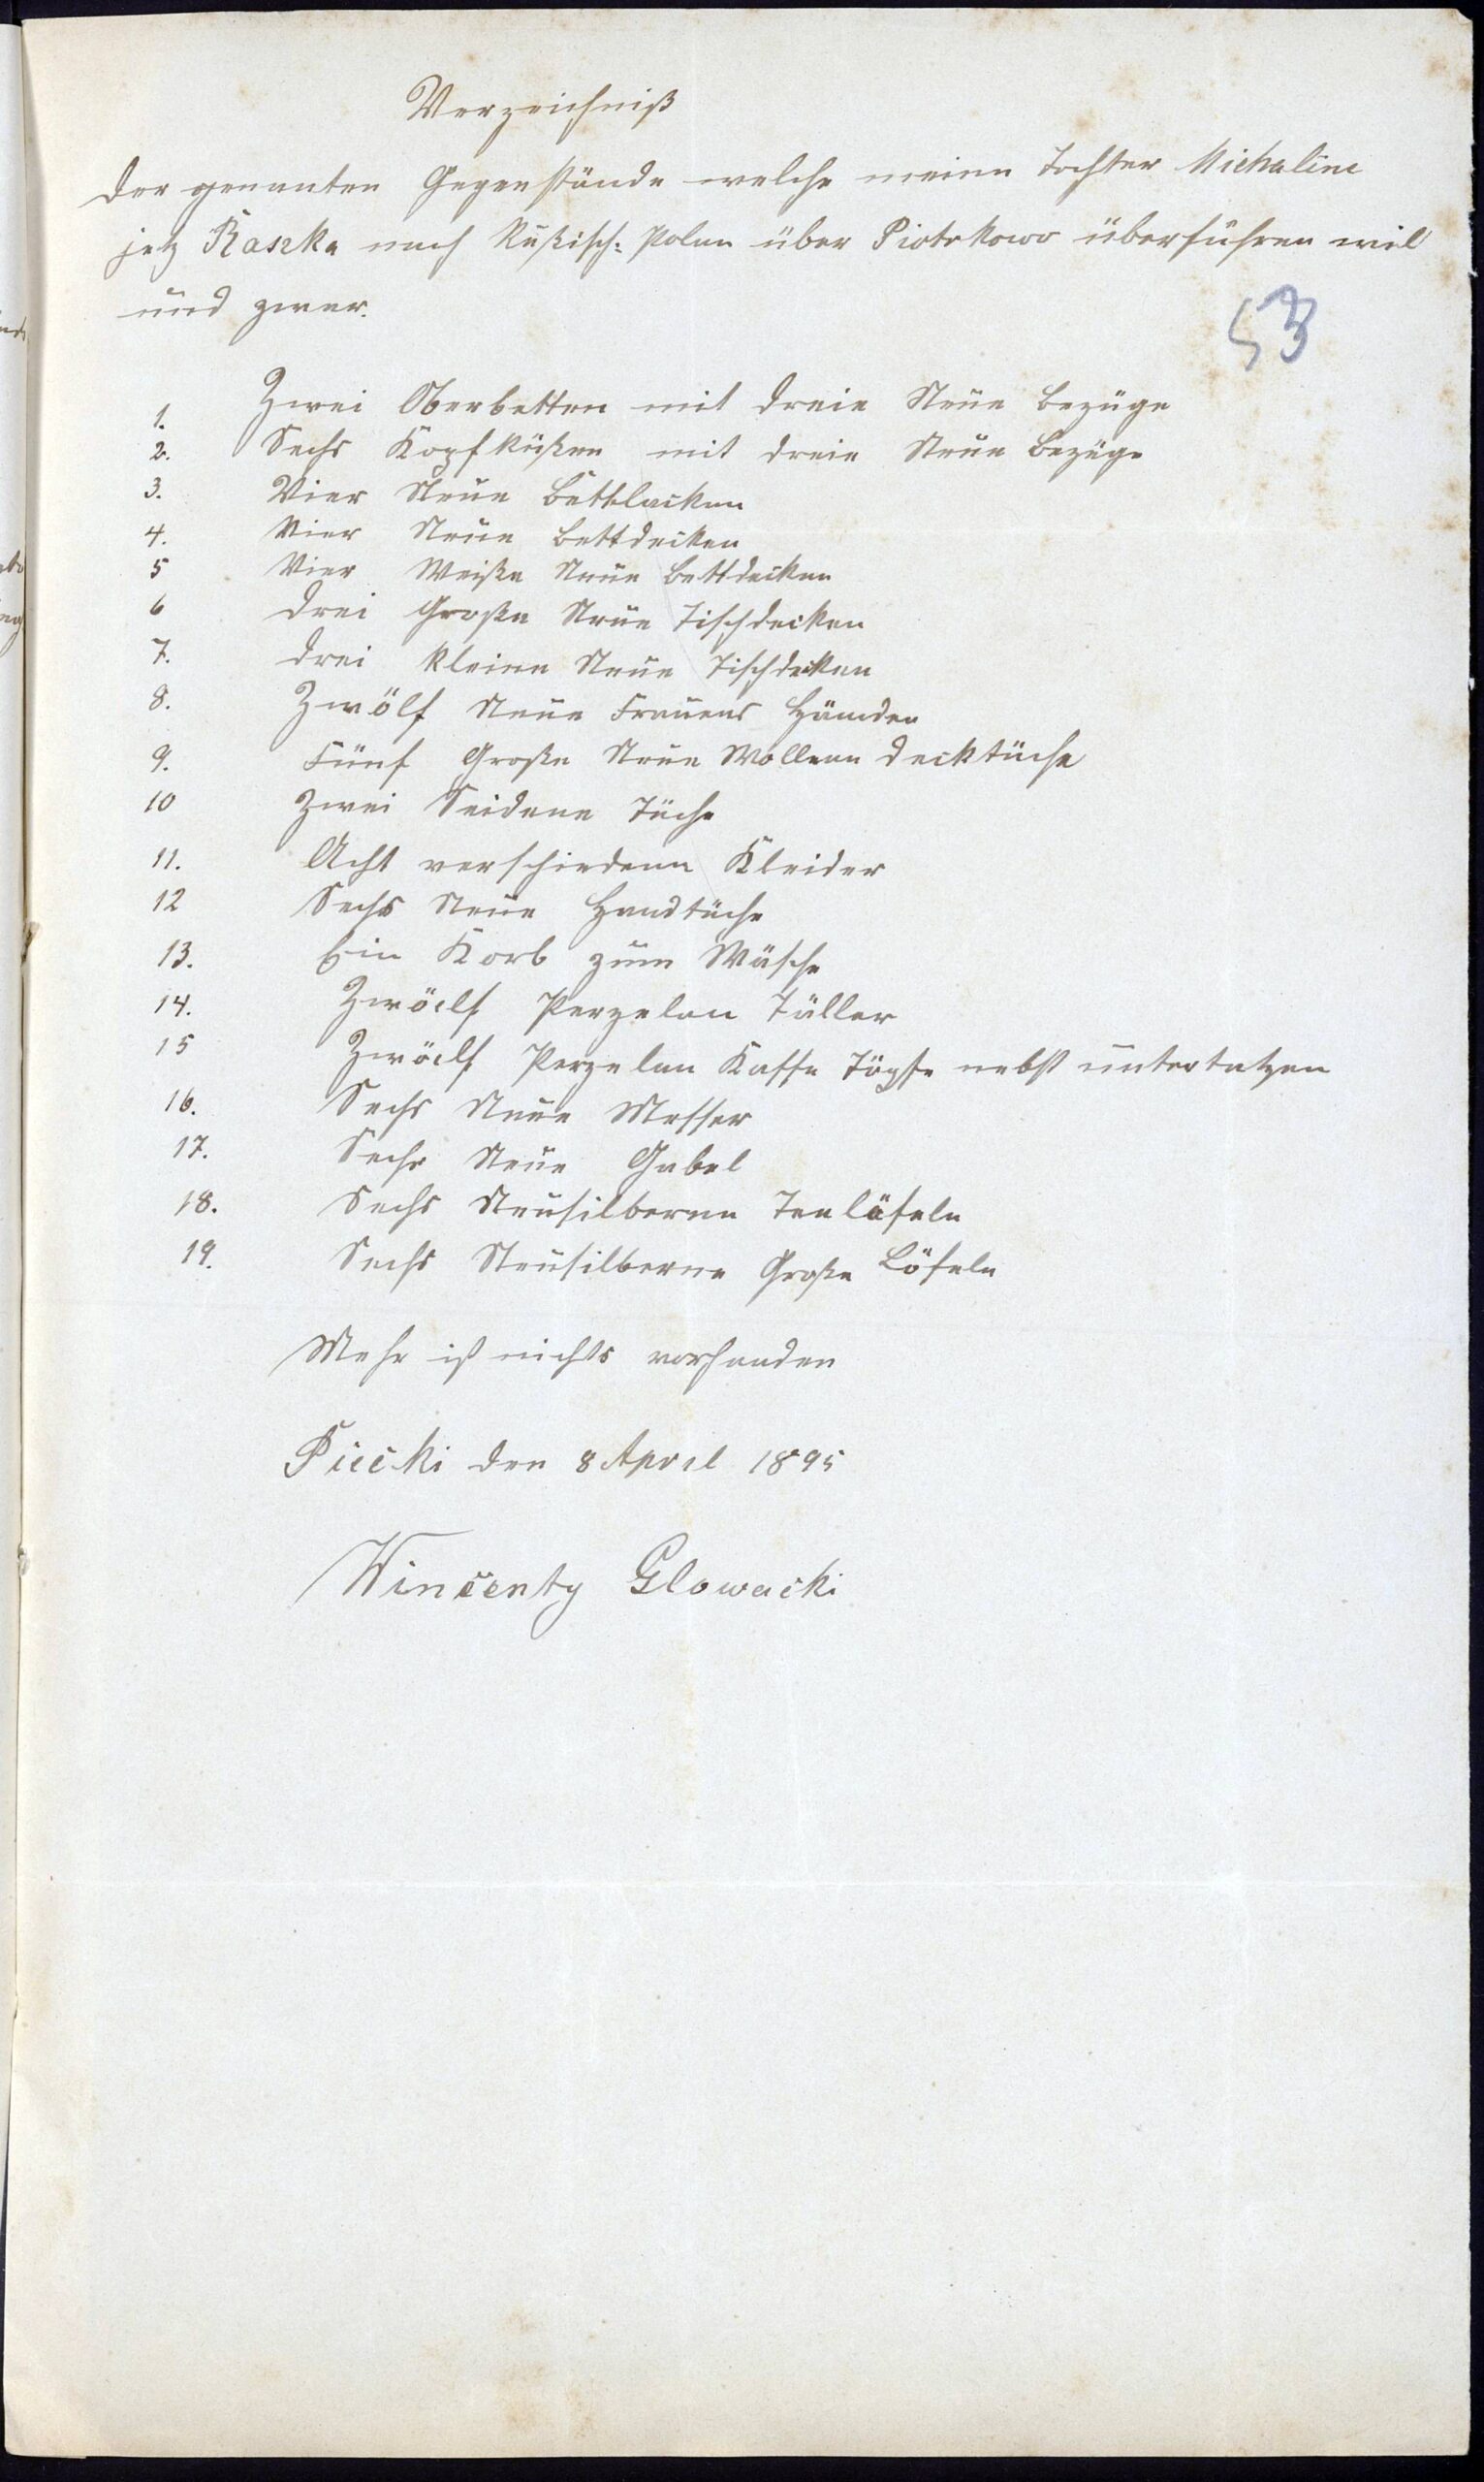 Verzeichniß
der genanten Gegenstände welche meine Tochter Michaline
jetz Raszka nach Rußisch: Polen über Piotrkowo überführen wil
und zwar.
53
1. Zwei Oberbetten mit dreie Neue Bezüge
2. Sechs Kopfküßen mit dreie Neue Bezüge
3. Vier Neue Bettlacken
4. Vier Neue Bettdecken
5 Vier Weiße Neue Bettdecken
6 Drei Große Neue Tischdecken
7. Drei Kleine Neue Tischdecken
8. Zwölf Neue Frauens Hämden
9. Fünf Große Neue Wollene Decktüche
10 Zwei Seidene Tüche
11. Acht verschiedene Kleider
12 Sechs Neue Handtüche
13. Ein Korb zum Wäsche
14. Zwöelf Perzelan Täller
15 Zwöelf Perzelan Kaffe Töpfe nebst untertatzen
16. Sechs Neue Messer
17. Sechs Neue Gabel
18. Sechs Neusilberne Teelöfeln
19. Sechs Neusilberne Große Löfeln
Mehr ist nichts vorhanden
Piecki den 8 April 1895
Wincenty Glowacki